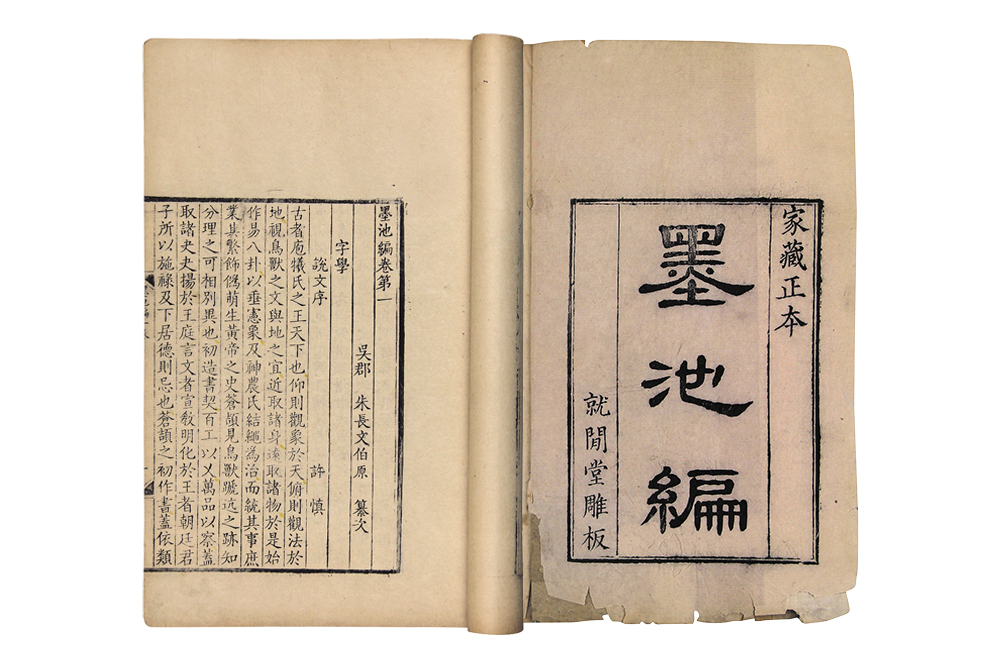 家藏正本
墨池編
就閒堂雕板
墨池編卷第一
吳郡 朱長文伯原 纂次
字學
說文序 許慎
古者庖犧氏之王天下也仰則觀象於天俯則觀法於
地視鳥獸之文與地之宜近取諸身遠取諸物於是始
作易八卦以垂憲象及神農氏結繩為治而統其事庶
業其繁飾僞萌生黃帝之史蒼頡見鳥獸蹏迒之跡知
分理之可相別異也初造書契百工以乂萬品以察蓋
取諸夬夬揚於王庭言文者宣敎明化於王者朝廷君
子所以施祿及下居德則忌也蒼頡之初作書蓋依類